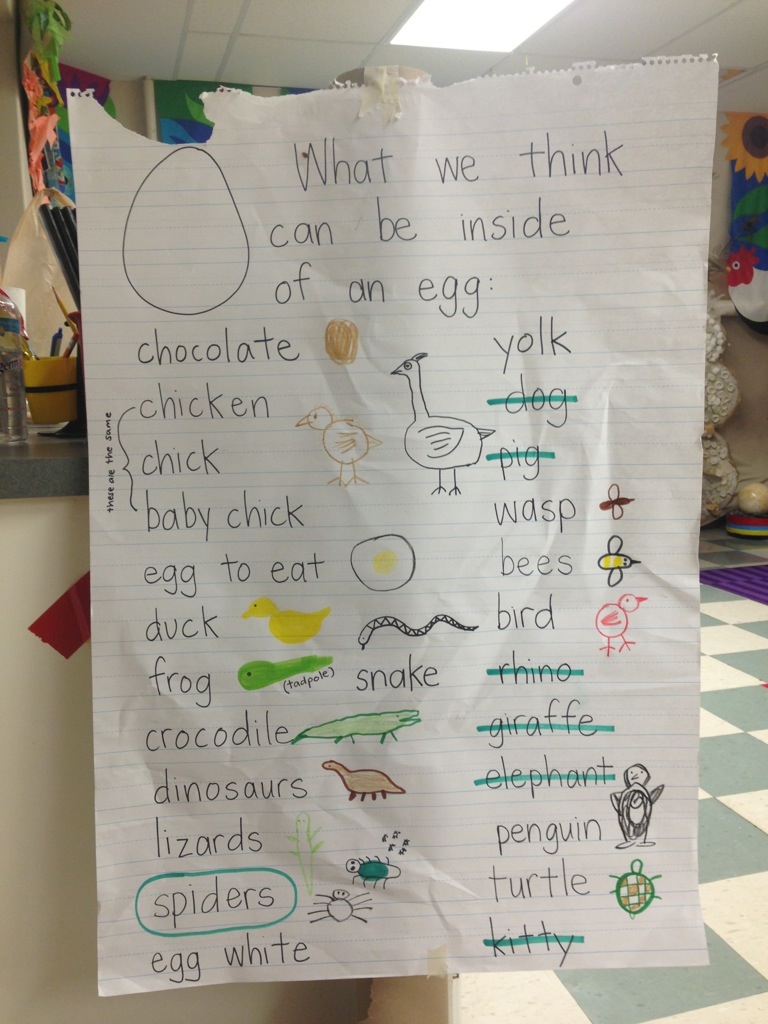 What we think
can be inside
of an egg:
chocolate
chicken
chick
baby chick
these are the same
egg to eat
duck
frog
(tadpole)
snake
crocodile
dinosaurs
lizards
spiders
egg white
yolk
dog
pig
wasp
bees
bird
rhino
giraffe
elephant
penguin
turtle
kitty